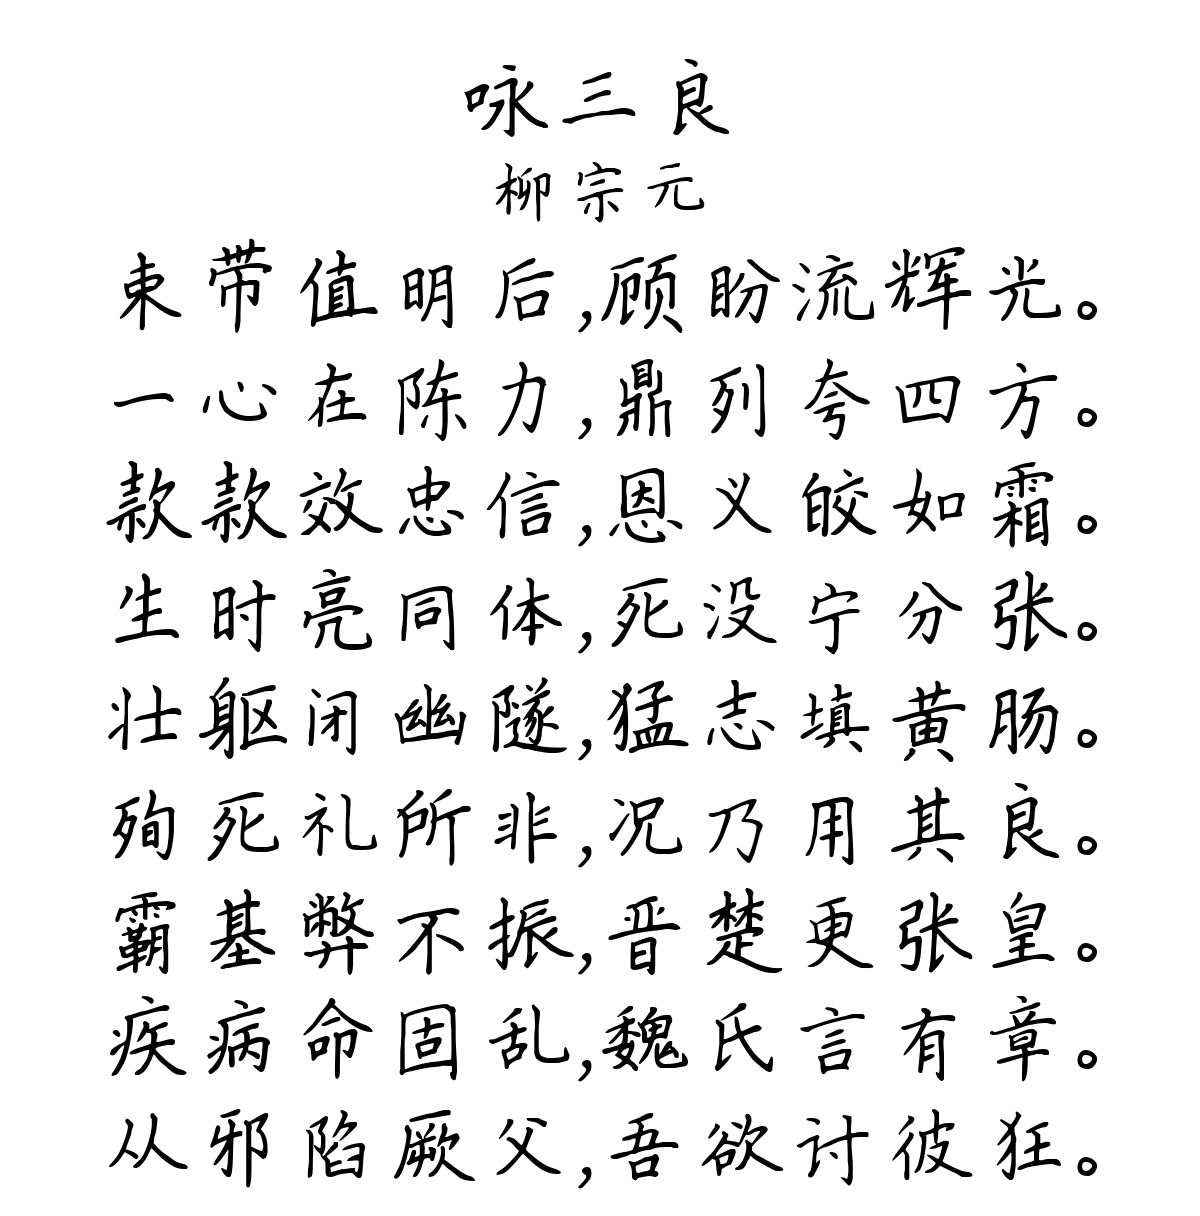 咏三良
柳宗元
束带值明后,顾盼流辉光。
一心在陈力,鼎列夸四方。
款款效忠信,恩义皎如霜。
生时亮同体,死没宁分张。
壮躯闭幽隧,猛志填黄肠。
殉死礼所非,况乃用其良。
霸基弊不振,晋楚更张皇。
疾病命固乱,魏氏言有章。
从邪陷厥父,吾欲讨彼狂。